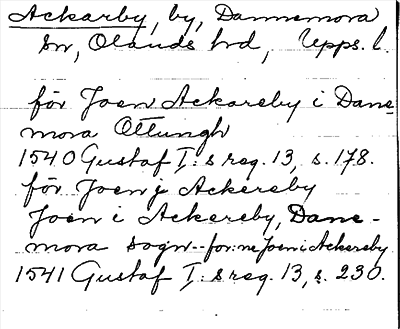 Ackarby, by, Dannemora
sn, Olands hd, Upps. l.
för Joen Ackareby i Dane=
mora Ottungh
1540 Gustaf I:s reg. 13, s. 178.
för Joen j Ackersby
Joen i Ackersby, Dane-
mora sogn -- for:ne Joen i Ackersby
1541 Gustaf I:s reg. 13, s. 230.